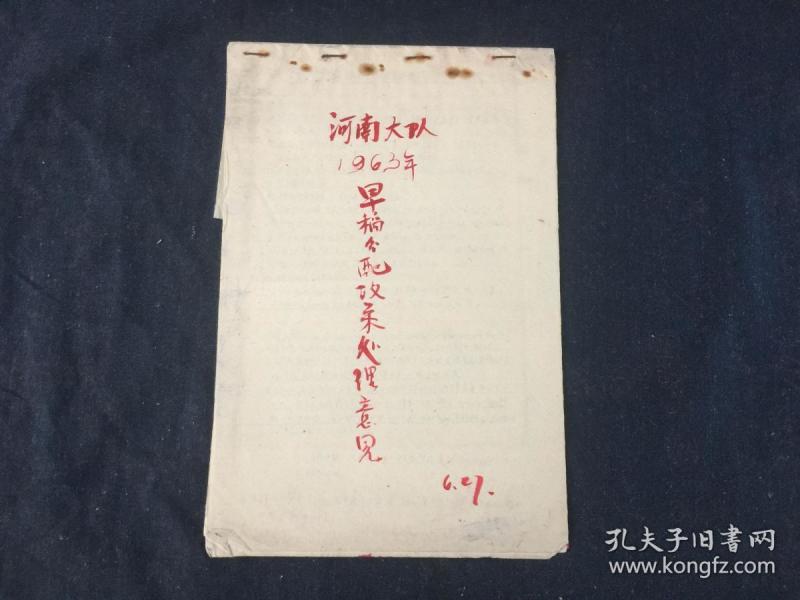 河南大队
1963年
早稻分配政策处理意见
6.27.
孔夫子旧書网
www.kongfz.com